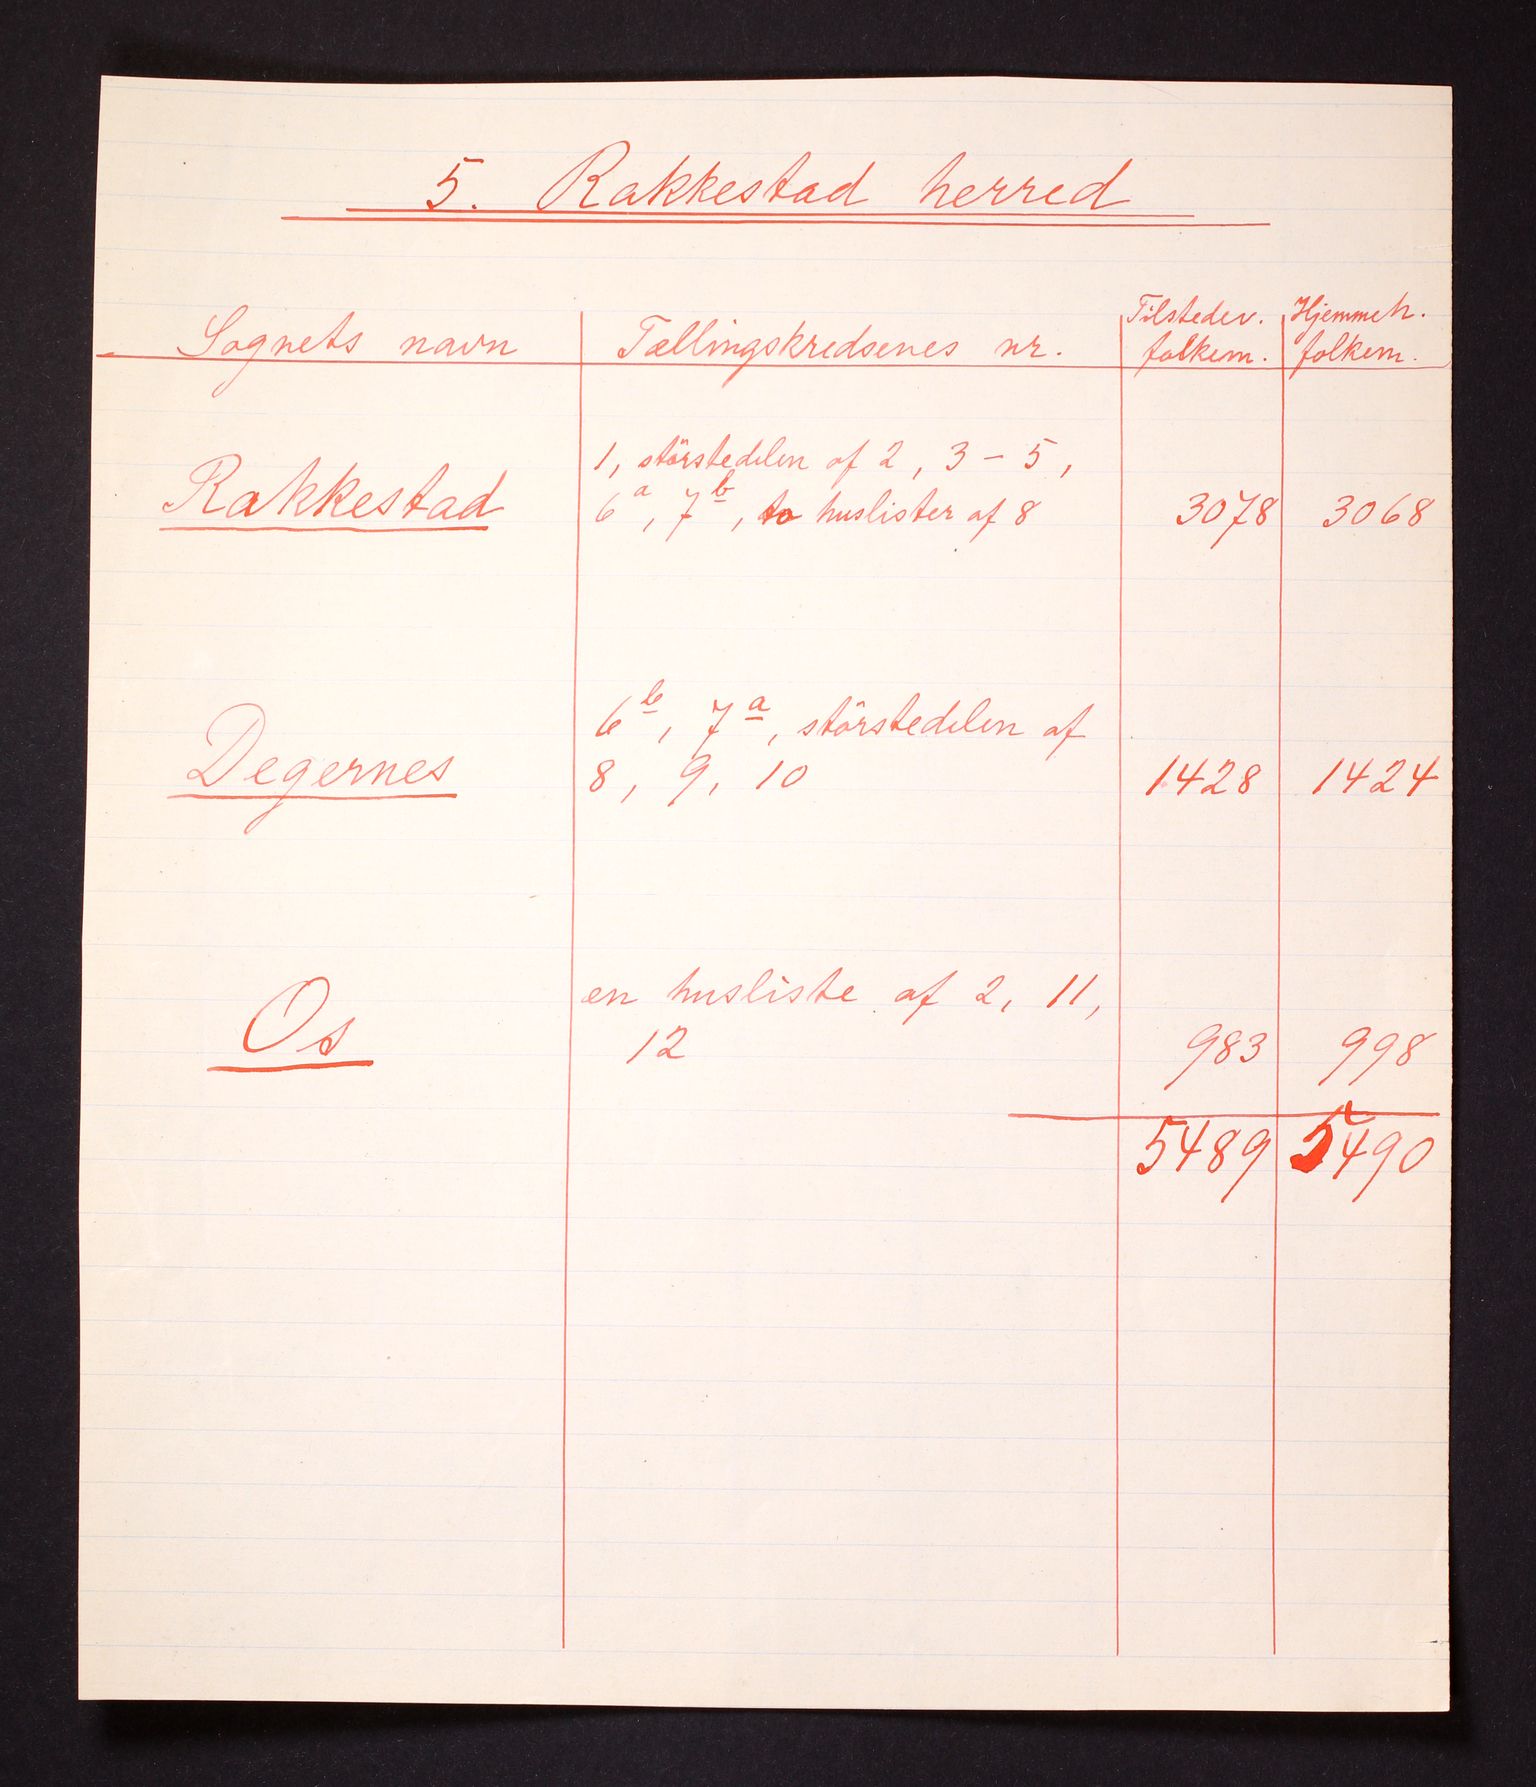 5. Rakkestad herred
Sognets navn
Tællingskredsenes nr.
Tilstedev. folkem.
Hjemmeh. folkem.
Rakkestad
1, störstedelen af 2, 3 – 5,
6a, 7b, to huslister af 8
3078
3068
Degernes
6b, 7a, störstedelen af
8, 9, 10
1428
1424
Os
en husliste af 2, 11,
12
983
998
5489
5490